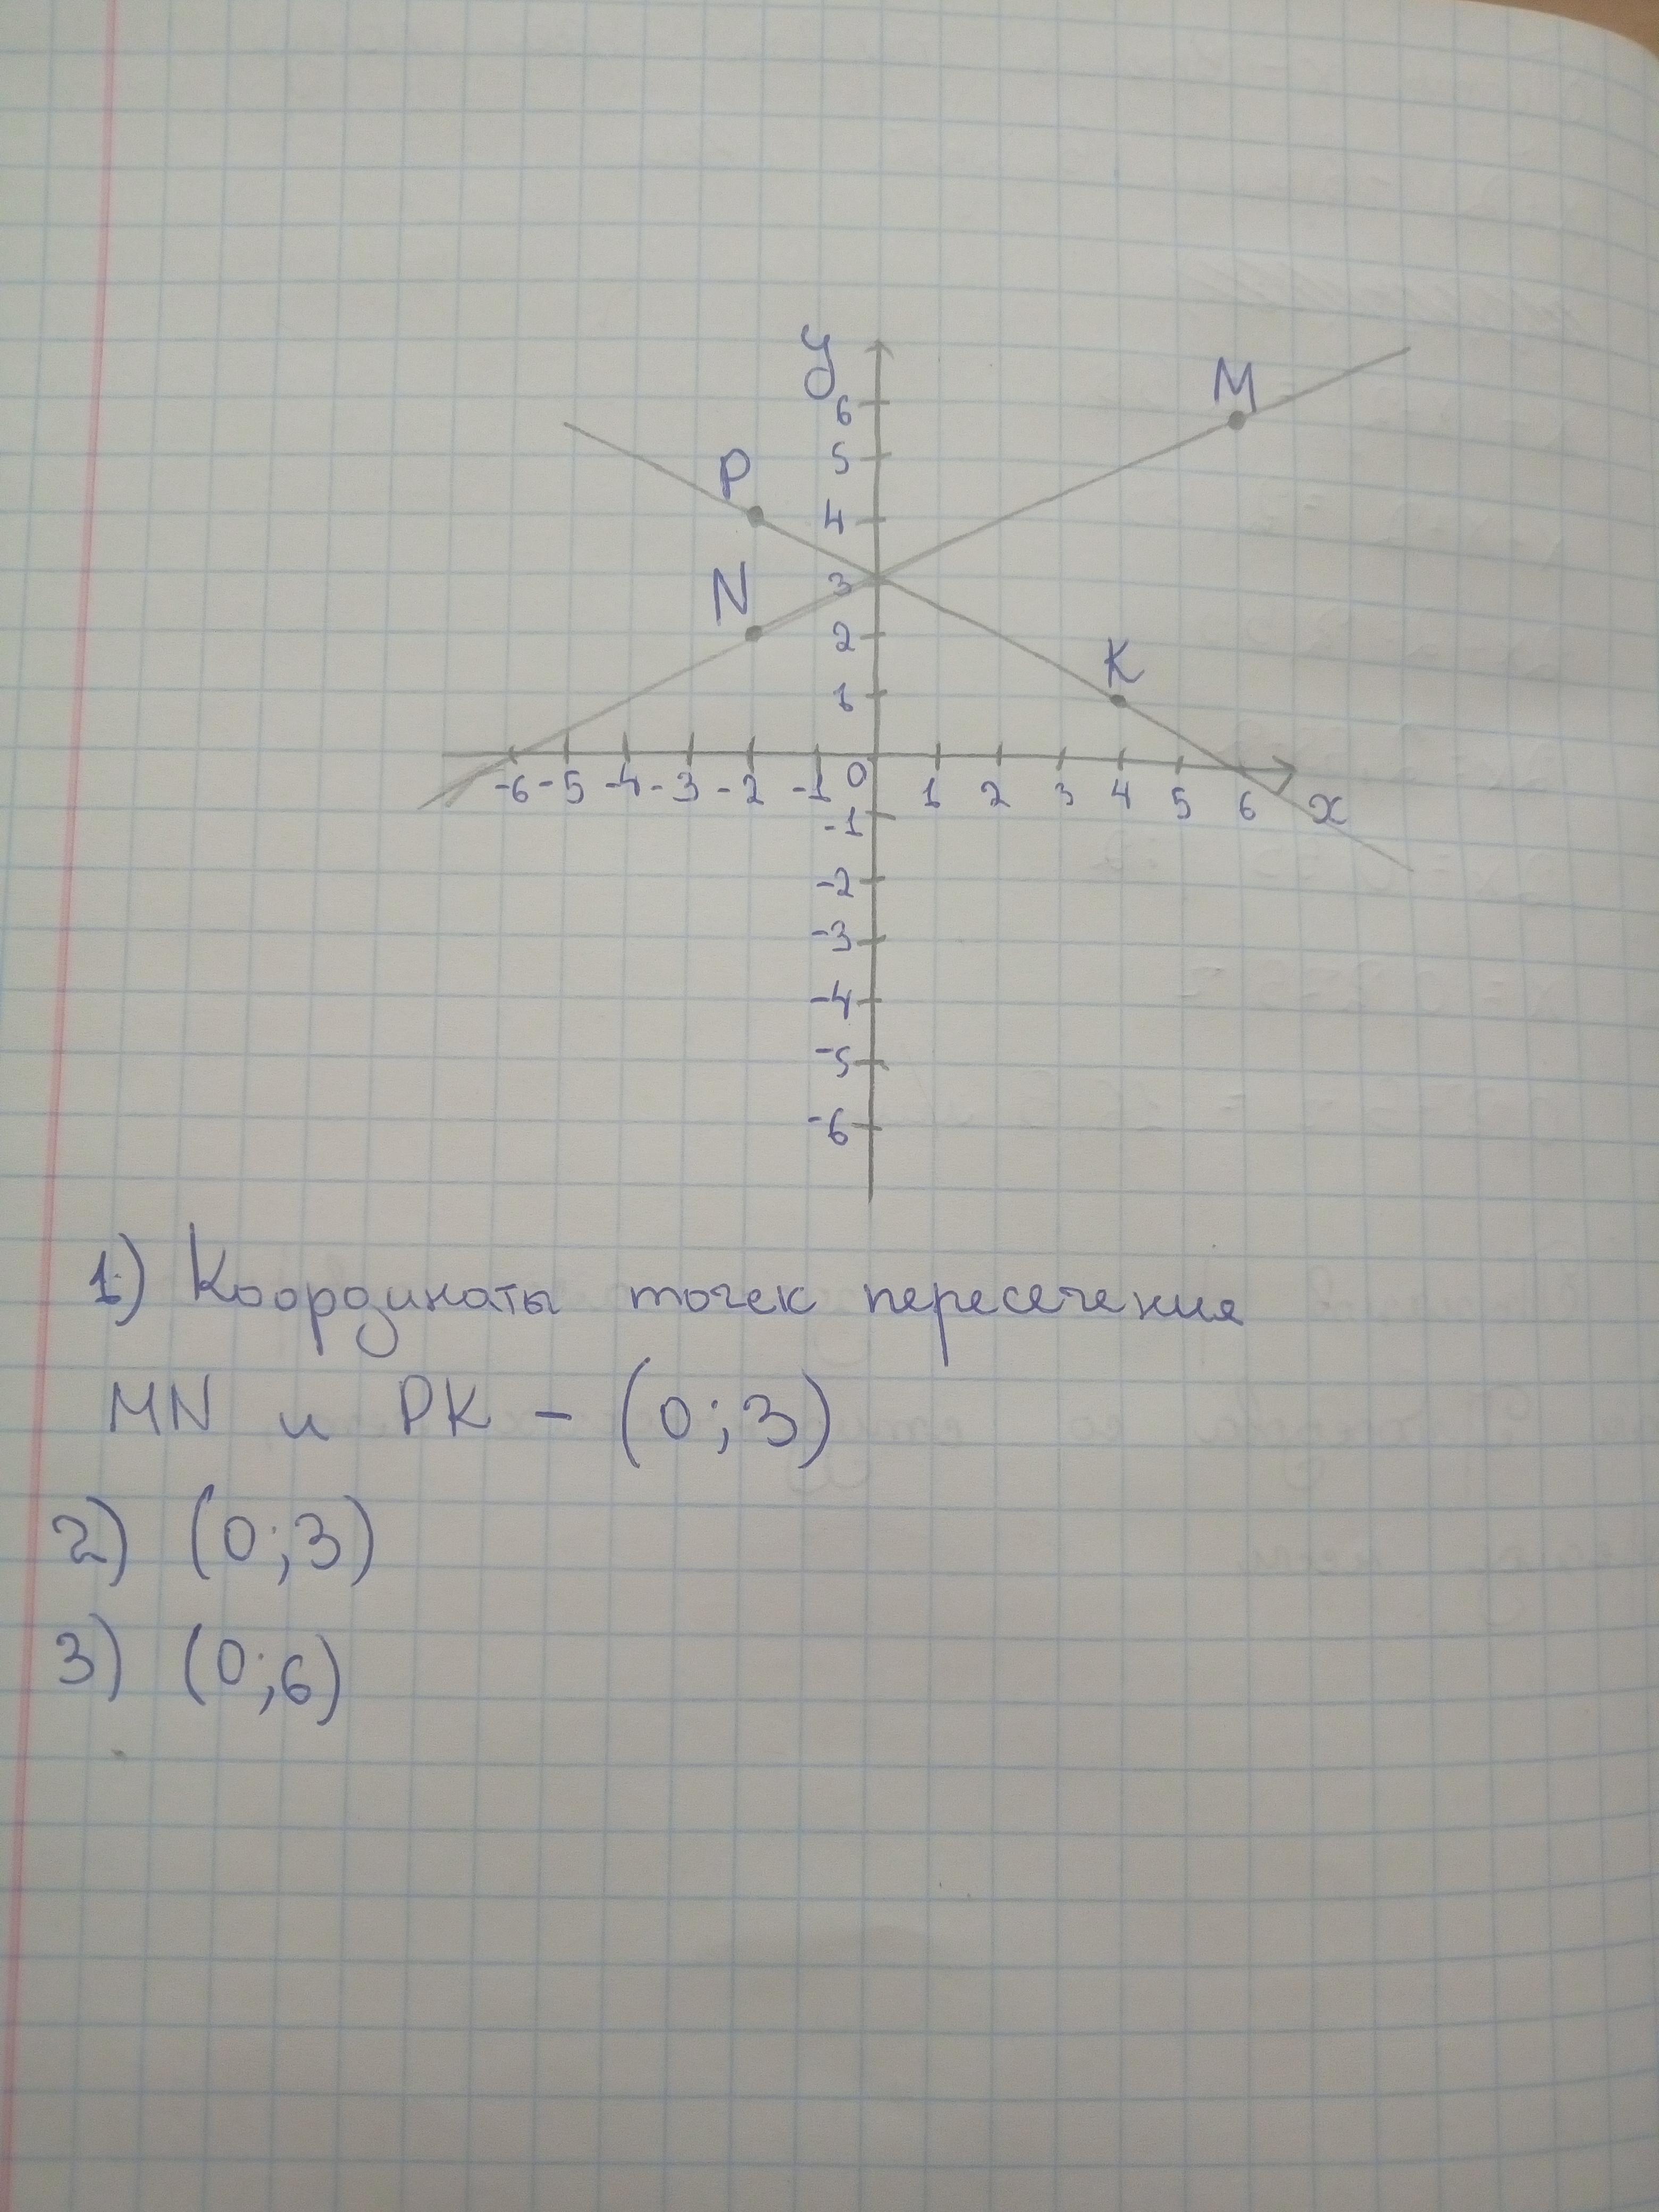 У
6
M
5
P
4
N
3
2
K
1
-6 -5 -4 -3 -2 -1 0 1 2 3 4 5 6 x
-1
-2
-3
-4
-5
-6
1) Координаты точек пересечения
MN и PK - (0;3)
2) (0;3)
3) (0;6)